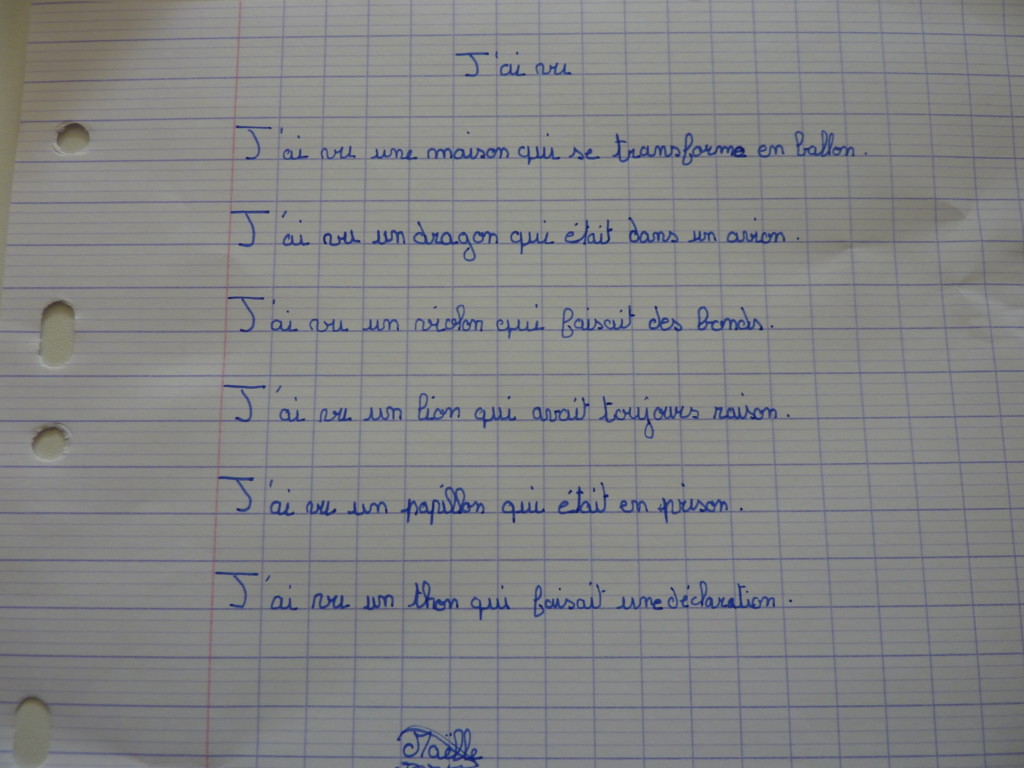 J'ai vu
J'ai vu une maison qui se transforme en ballon.
J'ai vu un dragon qui était dans un avion.
J'ai vu un violon qui faisait des bonds.
J'ai vu un lion qui avait toujours raison.
J'ai vu un papillon qui était en prison.
J'ai vu un thon qui faisait une déclaration.